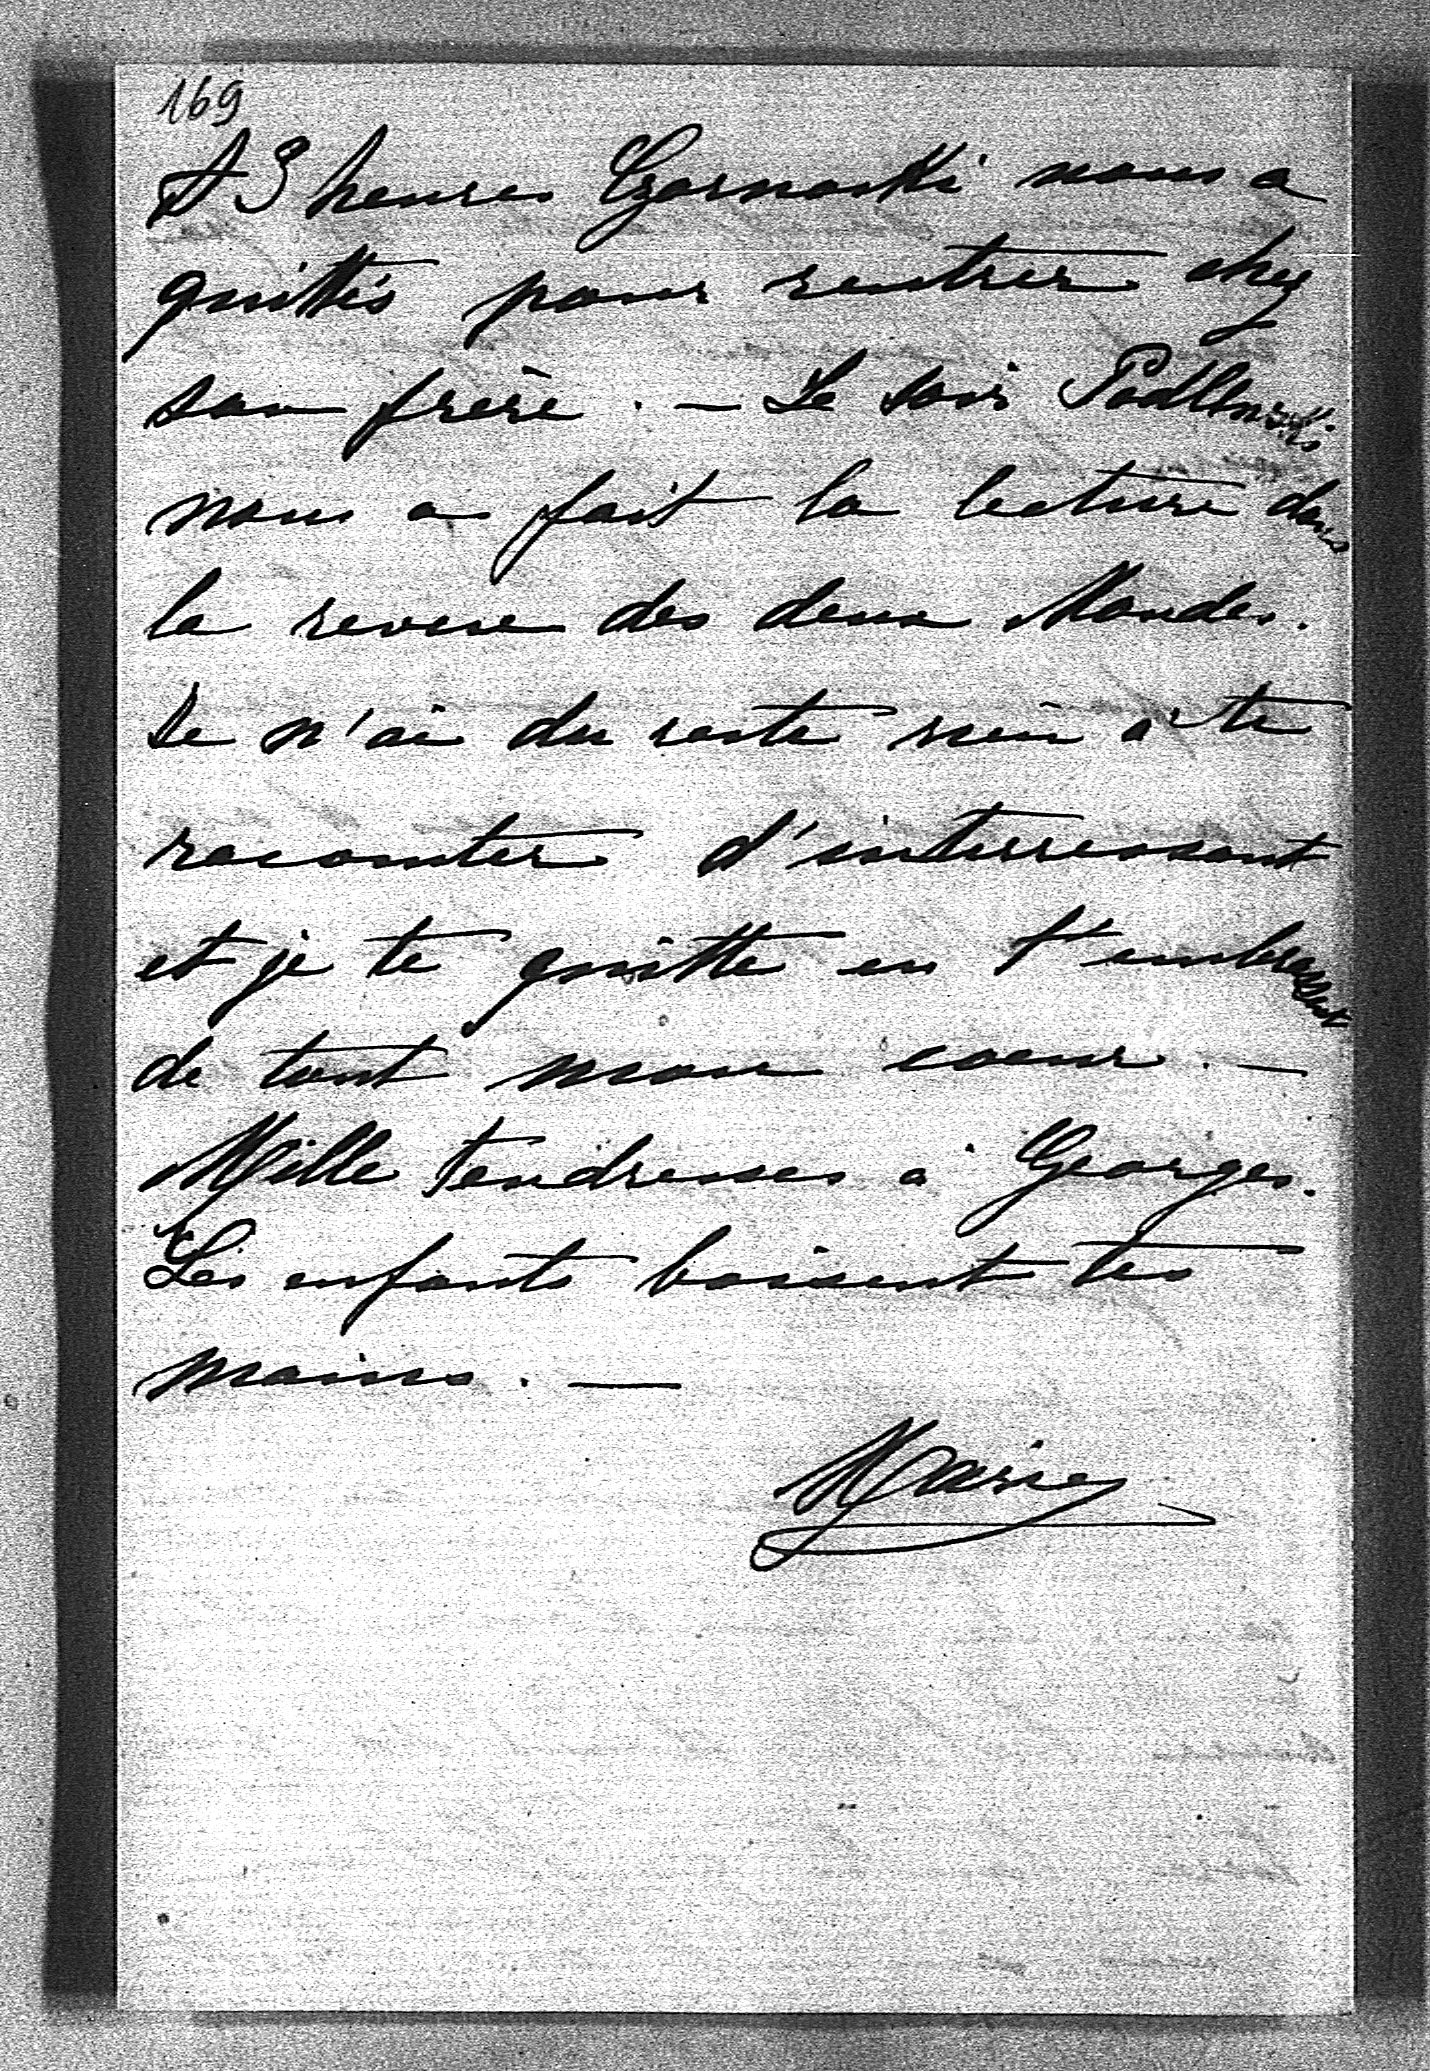 169
A 3 heures Czarnocki nous a
quittés pour rentrer chez
son frère. — Le soir Podlewski
nous a fait la lecture dans
la revue des deux Mondes.
Je n'ai du reste rien à te
raconter d'interressant
et je te quitte en t'embrassant
de tout mon coeur. —
Mille tendresses à Georges.
Les enfants baisent tes
mains. —
Marie